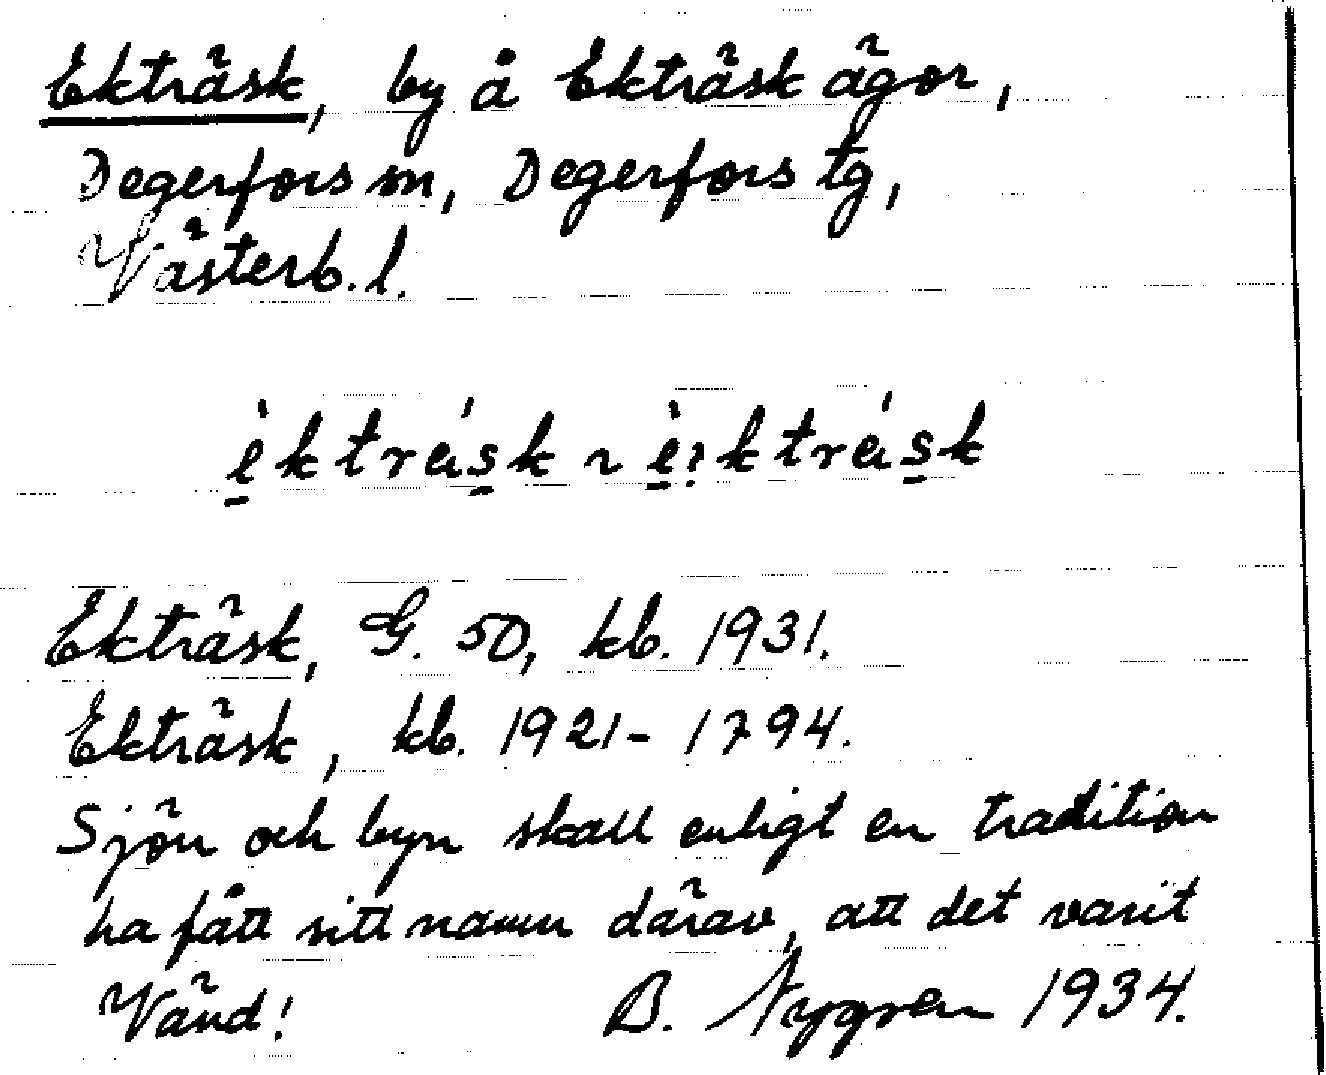 Ekträsk, by å Ekträsk ägor,
Degerfors sn, Degerfors tg,
Västerb. l.
è̱ktrás̱k ~ è̱:ktrás̱k
Ekträsk, G. 50, kb. 1931.
Ekträsk, kb. 1921-1794.
Sjön och byn skall enligt en tradition
ha fått sitt namn därav, att det varit
Vänd! B. Nygren 1934.